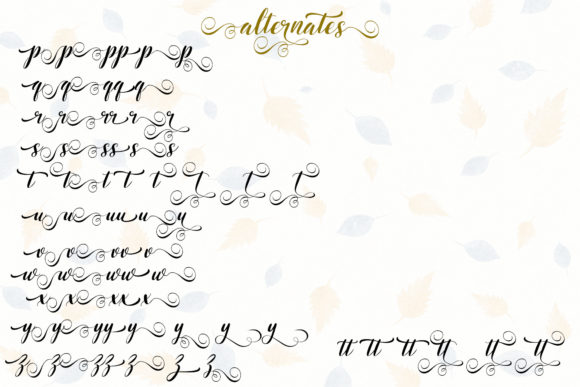 alternates
p p pp p p
q q qq q
r r rr r r
s s ss s s
t t t t t t t t
u u uu u u
v v vv v
w w ww w
x x xx x
y y yy y y y y
z z zz z z z
tt tt tt tt tt tt